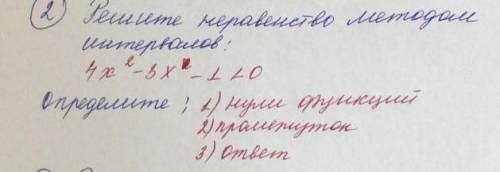 2) Решите неравенство методом
интервалов:
4x² - 3x - 1 < 0
Определите: 1) нули функций
2) промежуток
3) ответ